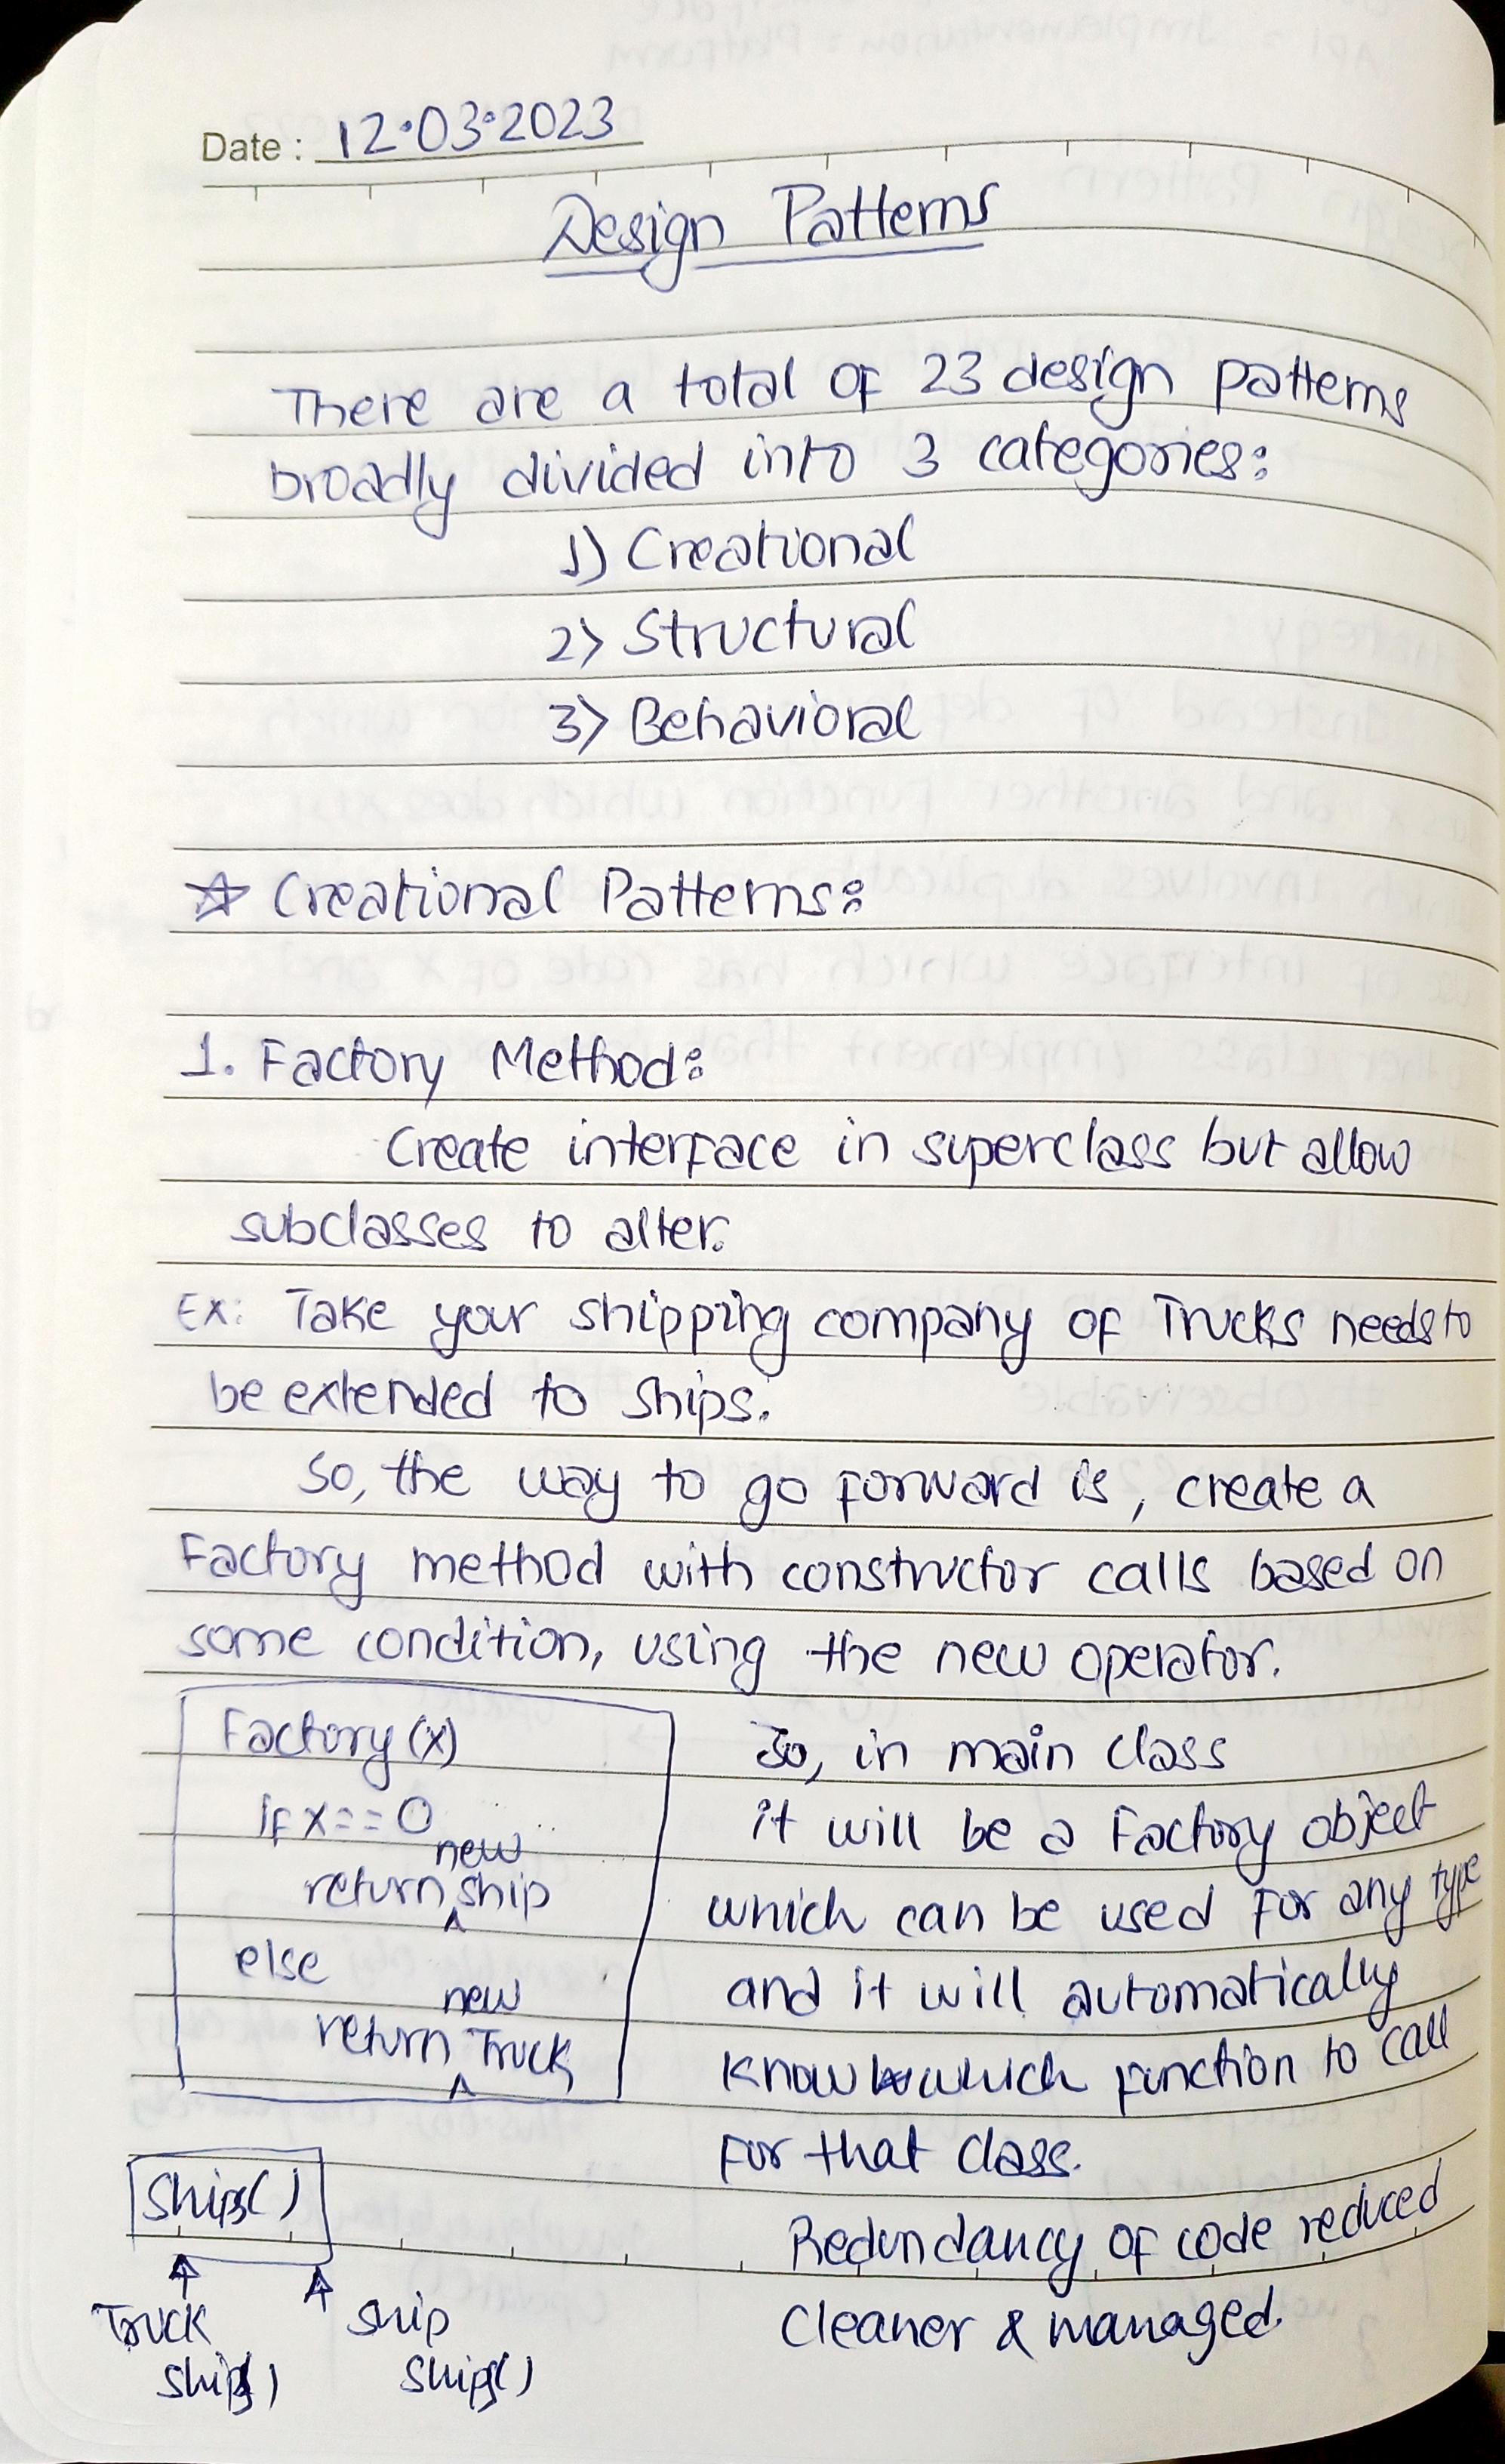 Date : 12.03.2023
Design Patterns
There are a total of 23 design patterns
broadly divided into 3 categories:
1) Creational
2) Structural
3) Behavioral
☆ Creational Patterns:
1. Factory Method:
Create interface in superclass but allow
subclasses to alter.
Ex: Take your shipping company of Trucks needs to
be extended to ships.
So, the way to go forward is, create a
Factory method with constructor calls based on
some condition, using the new operator.
Factory (x)
if x==0
return new ship
else
return new Truck
So, in main class
it will be a Factory object
which can be used for any type
and it will automatically
know which function to call
for that class.
Redundancy of code reduced
Cleaner & managed.
Ship()
Truck
ship()
ship
ship()